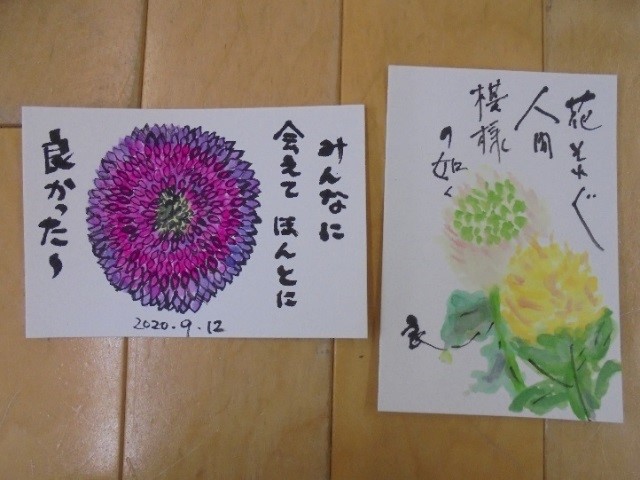 みんなに
会えて ほんとに
良かった〜
2020.9.12
花そぞぐ
人間
模様
の如く
良一